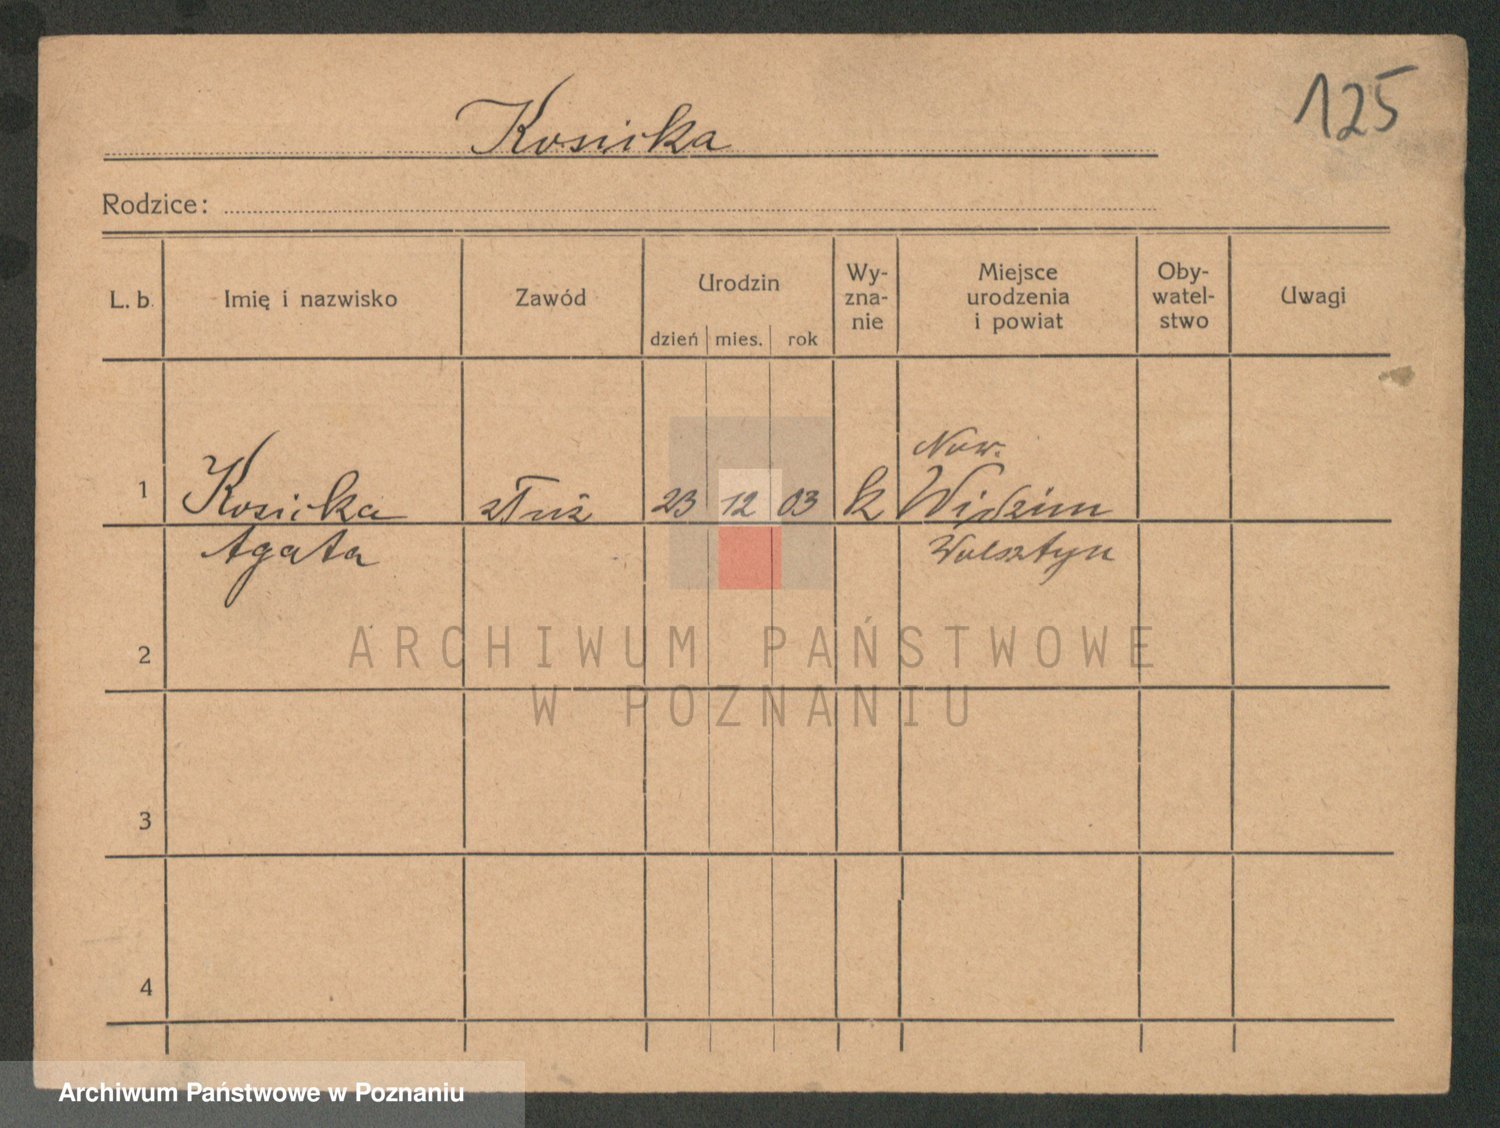 125
Kosicka
Rodzice:
L. b. Imię i nazwisko Zawód Urodzin dzień mies. rok Wy- zna- nie Miejsce urodzenia i powiat Oby- watel- stwo Uwagi
Now.
1 Kosicka służ 23 12 03 k Widzim
Agata Wolsztyn
2
3
4
ARCHIWUM PAŃSTWOWE
W POZNANIU
Archiwum Państwowe w Poznaniu